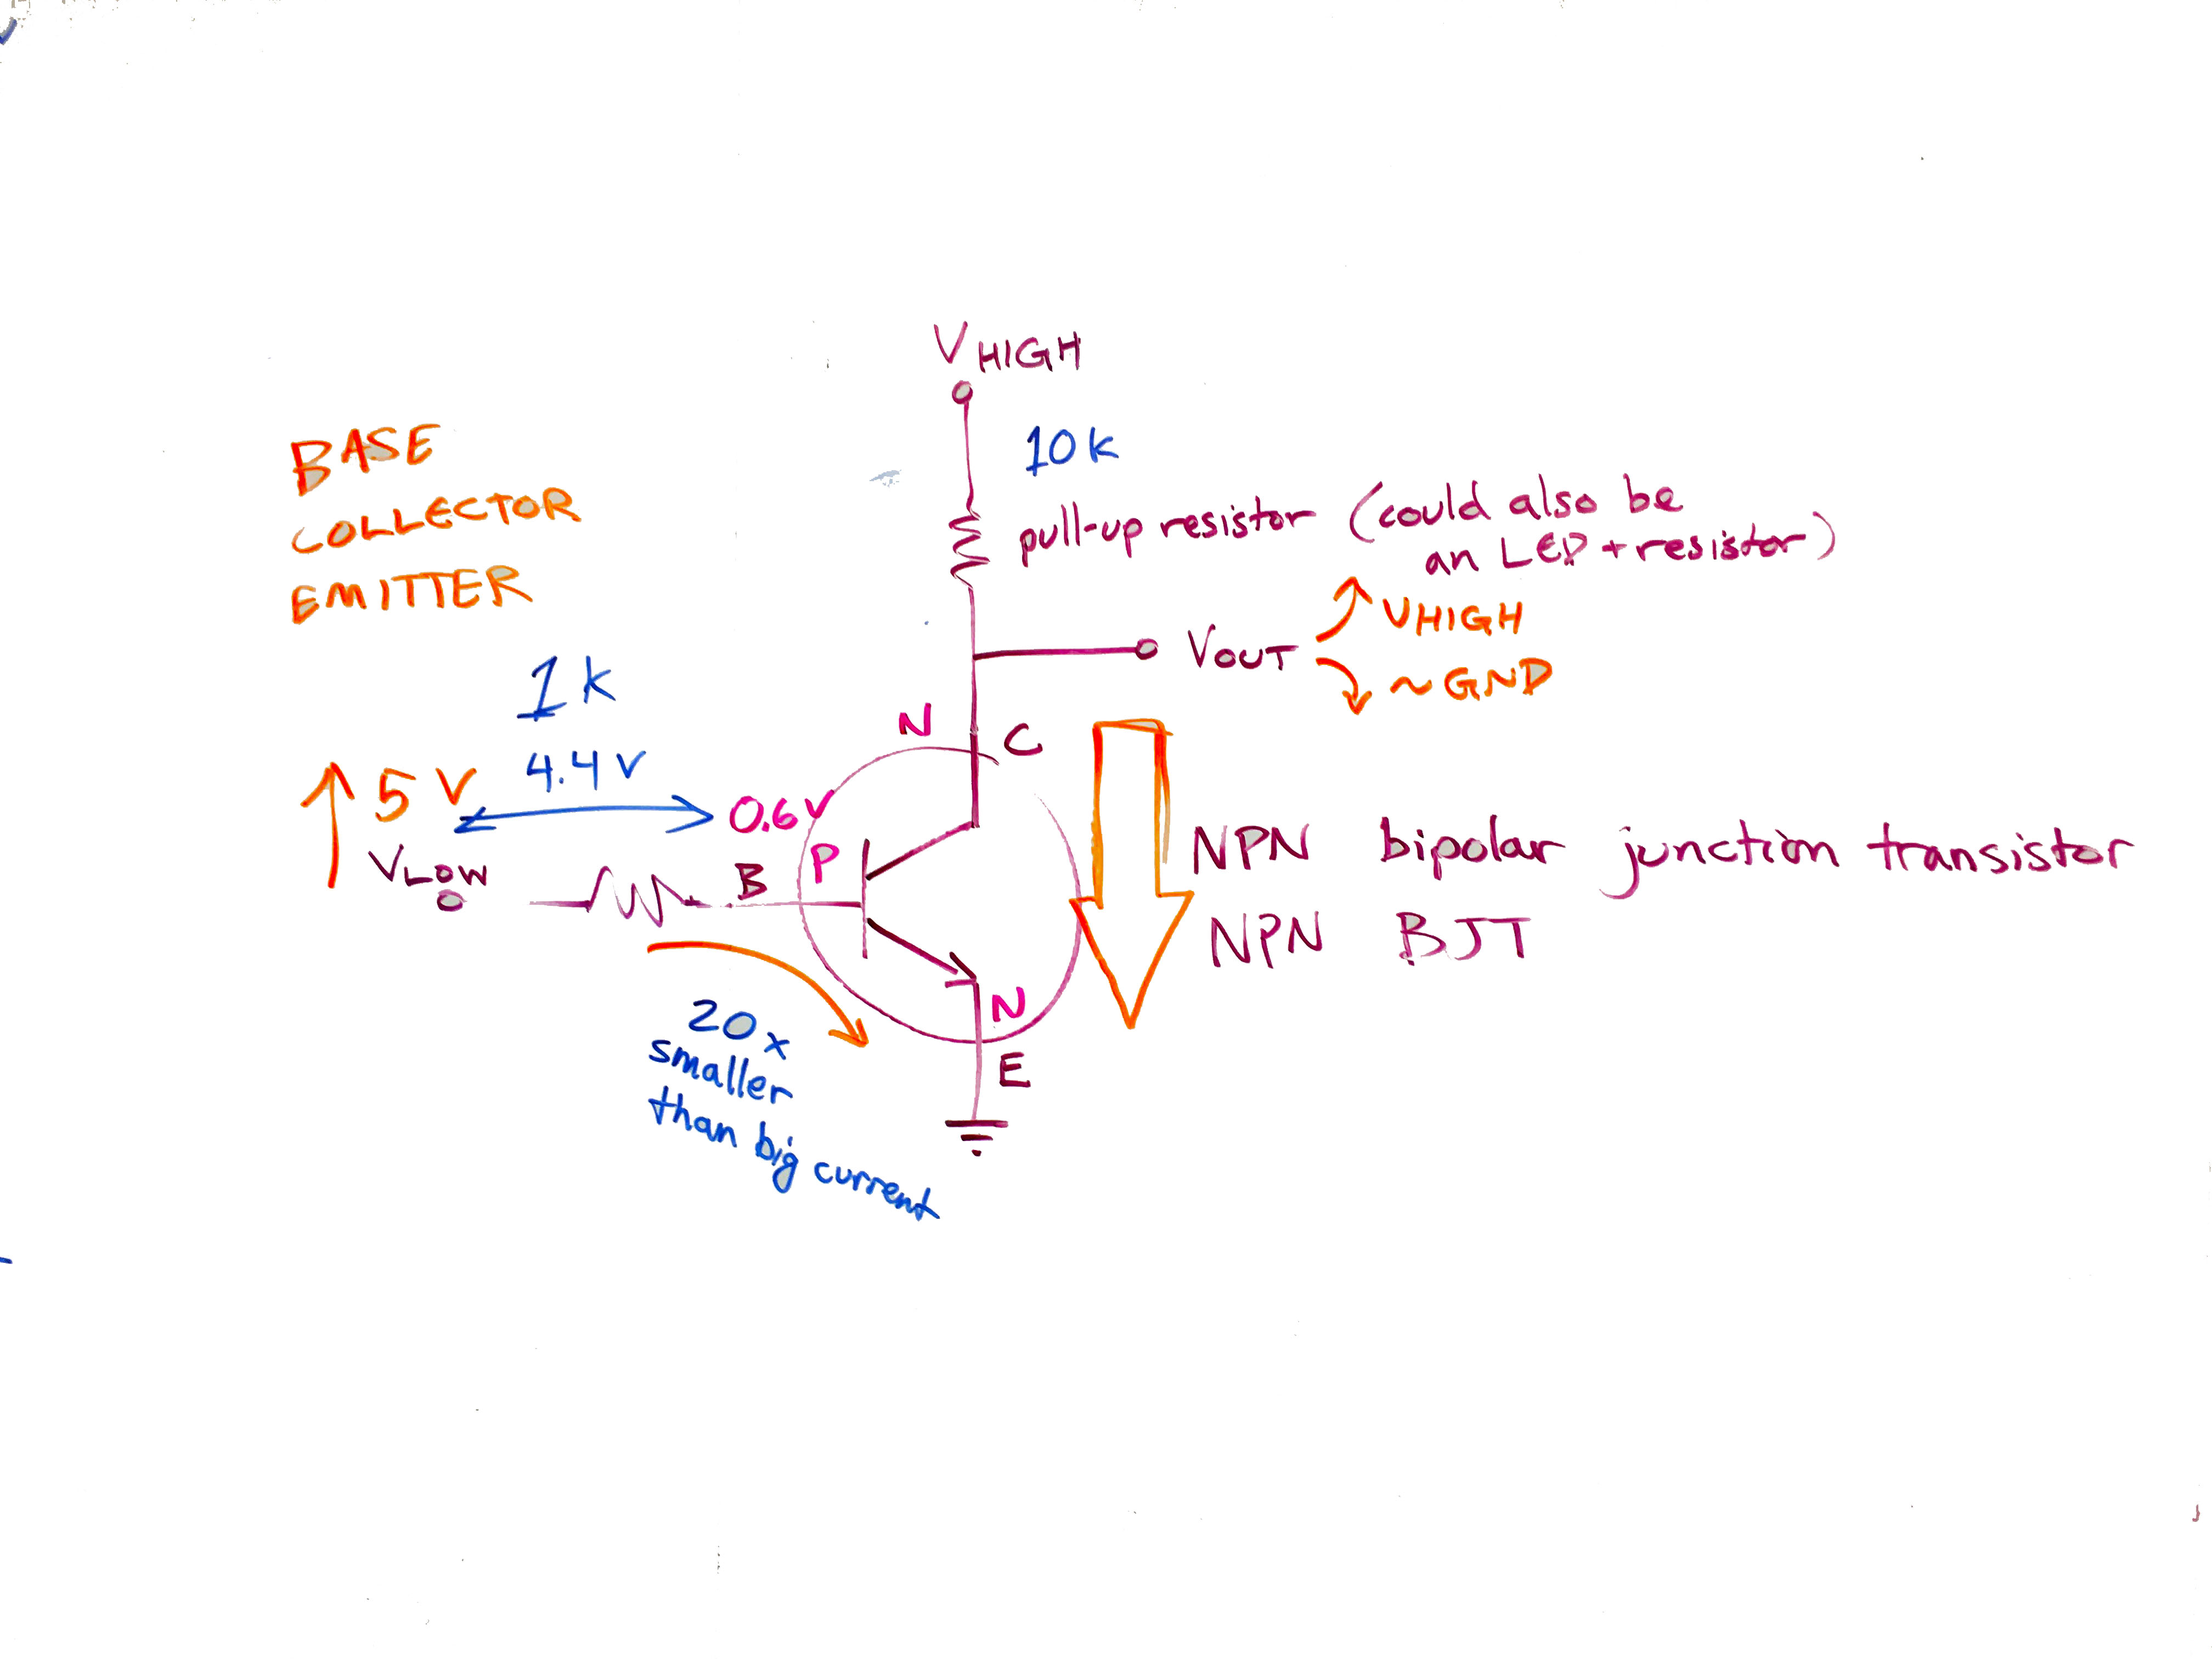 VHIGH
BASE
COLLECTOR
EMITTER
10k
pull-up resistor (could also be
an LED + resistor)
VOUT
VHIGH
~GND
1k
4.4V
5V
VLOW
0.6V
N
C
P
B
N
E
NPN bipolar junction transistor
NPN BJT
20x
smaller
than big current